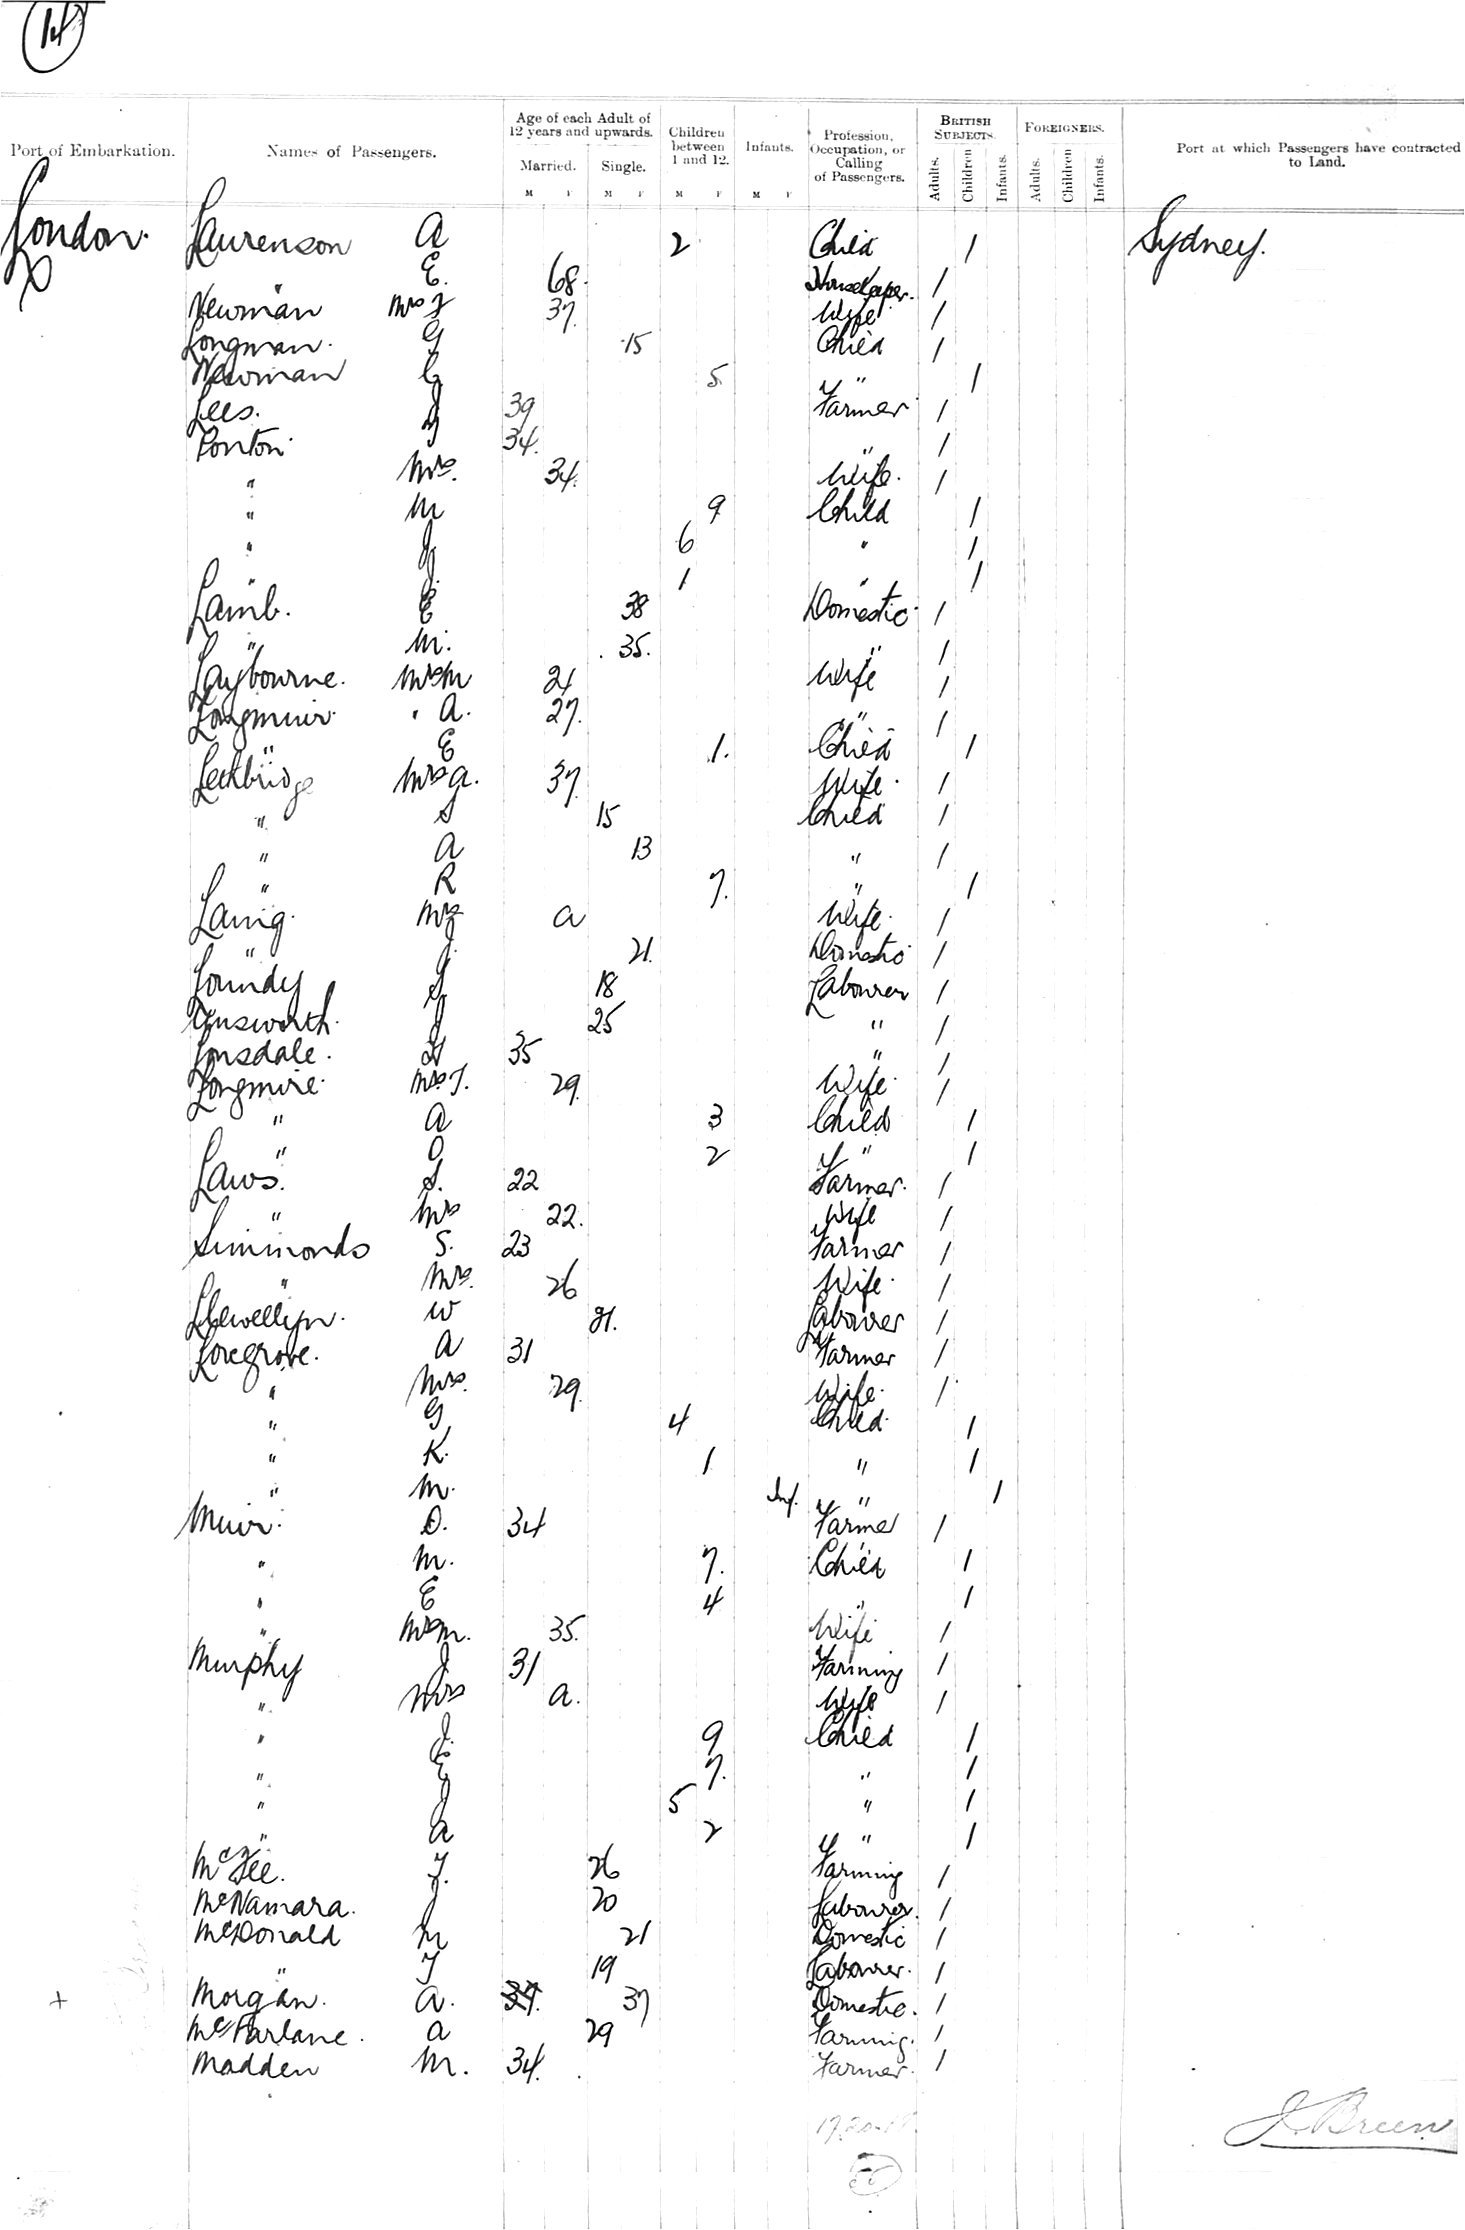 14
Port of Embarkation. Names of Passengers. Age of each Adult of 12 years and upwards. Married. Single. M F M F Children between 1 and 12. M F Infants. M F Profession, Occupation, or Calling of Passengers. BRITISH SUBJECTS. Adults. Children Infants. FOREIGNERS. Adults. Children Infants. Port at which Passengers have contracted to Land.
London. Laurenson A 2 Child 1 Sydney.
" E. 68. Housekeeper. 1
Newman Mrs J 37. Wife 1
Longman. G 15 Child 1
Newman G 5 " 1
Lees. J 39 Farmer 1
Ponton J 34. " 1
" Mrs. 34. Wife. 1
" M 9 Child 1
" J 6 " 1
" J. 1 " 1
Lamb. E 38 Domestic 1
" M. 35. " 1
Laybourne. Mrs M 21 Wife 1
Longmuir. " A. 27. " 1
" E 1. Child 1
Lethbridge Mrs A. 37 Wife. 1
" S 15 Child 1
" A 13 " 1
" R 7. " 1
Laing. Mrs a Wife. 1
" J. 21. Domestic 1
Loundy S 18 Labourer 1
Unsworth. J 25 " 1
Lonsdale. H 35 " 1
Longmire. Mrs T. 29. Wife. 1
" A 3 Child 1
" O 2 " 1
Laws. S. 22 Farmer. 1
" Mrs 22. Wife 1
Simmonds S. 23 Farmer 1
" Mrs. 26 Wife. 1
Llewellyn. W 21. Labourer 1
Lovegrove. A 31 Farmer 1
" Mrs. 29. Wife. 1
" G 4 Child. 1
" K. 1 " 1
" M. Inf. " 1
Muir. D. 34 Farmer 1
" M. 7. Child 1
" E 4 " 1
" Mrs M. 35. Wife 1
Murphy J 31 Farming 1
" Mrs a. Wife 1
" J. 9 Child 1
" E 7. " 1
" J 5 " 1
" A 2 " 1
McFee. J. 26 Farming 1
McNamara. J 20 Labourer. 1
McDonald M 21 Domestic 1
" J 19 Labourer. 1
+ Morgan. A. 37. 37 Domestic. 1
McFarlane. A 29 Farming. 1
Madden M. 34. Farmer. 1
J. Breen